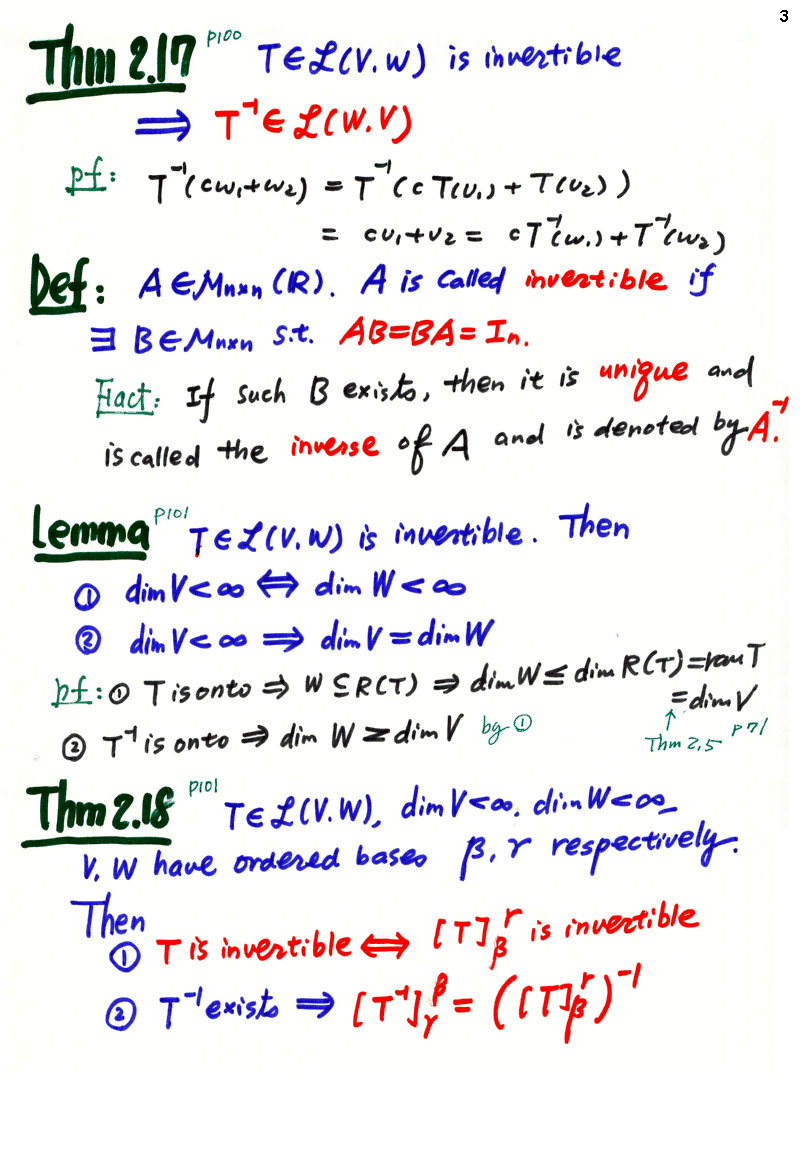 3
Thm 2.17 p100 T∈ℒ(V.W) is invertible
⟹ T⁻¹∈ℒ(W.V)
pf: T⁻¹(cw₁+w₂) = T⁻¹(c T(v₁) + T(v₂))
= cv₁+v₂ = cT⁻¹(w₁)+T⁻¹(w₂)
Def: A∈Mₙₓₙ(ℝ). A is called invertible if
∃ B∈Mₙₓₙ s.t. AB=BA=Iₙ.
Fact: If such B exists, then it is unique and
is called the inverse of A and is denoted by A⁻¹.
Lemma p101 T∈ℒ(V,W) is invertible. Then
① dim V<∞ ⟺ dim W<∞
② dim V<∞ ⟹ dim V = dim W
pf: ① T is onto ⇒ W⊆R(T) ⇒ dim W ≤ dim R(T)=ran T
= dim V
↑
Thm 2.5 p71
② T⁻¹ is onto ⇒ dim W ≥ dim V by ①
Thm 2.18 p101 T∈ℒ(V.W), dim V<∞. dim W<∞.
V, W have ordered bases β, γ respectively.
Then
① T is invertible ⟺ [T]_β^γ is invertible
② T⁻¹ exists ⟹ [T⁻¹]_γ^β = ([T]_β^γ)⁻¹